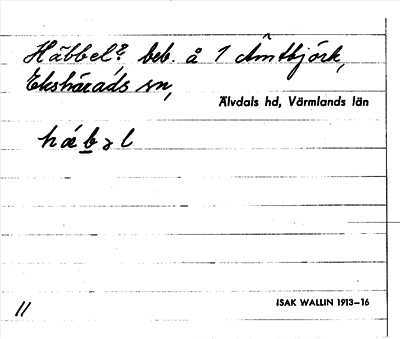 Häbbel? beb. å 1 Åmtbjörk,
Ekshärads sn,
Älvdals hd, Värmlands län
häbəl
11
ISAK WALLIN 1913–16